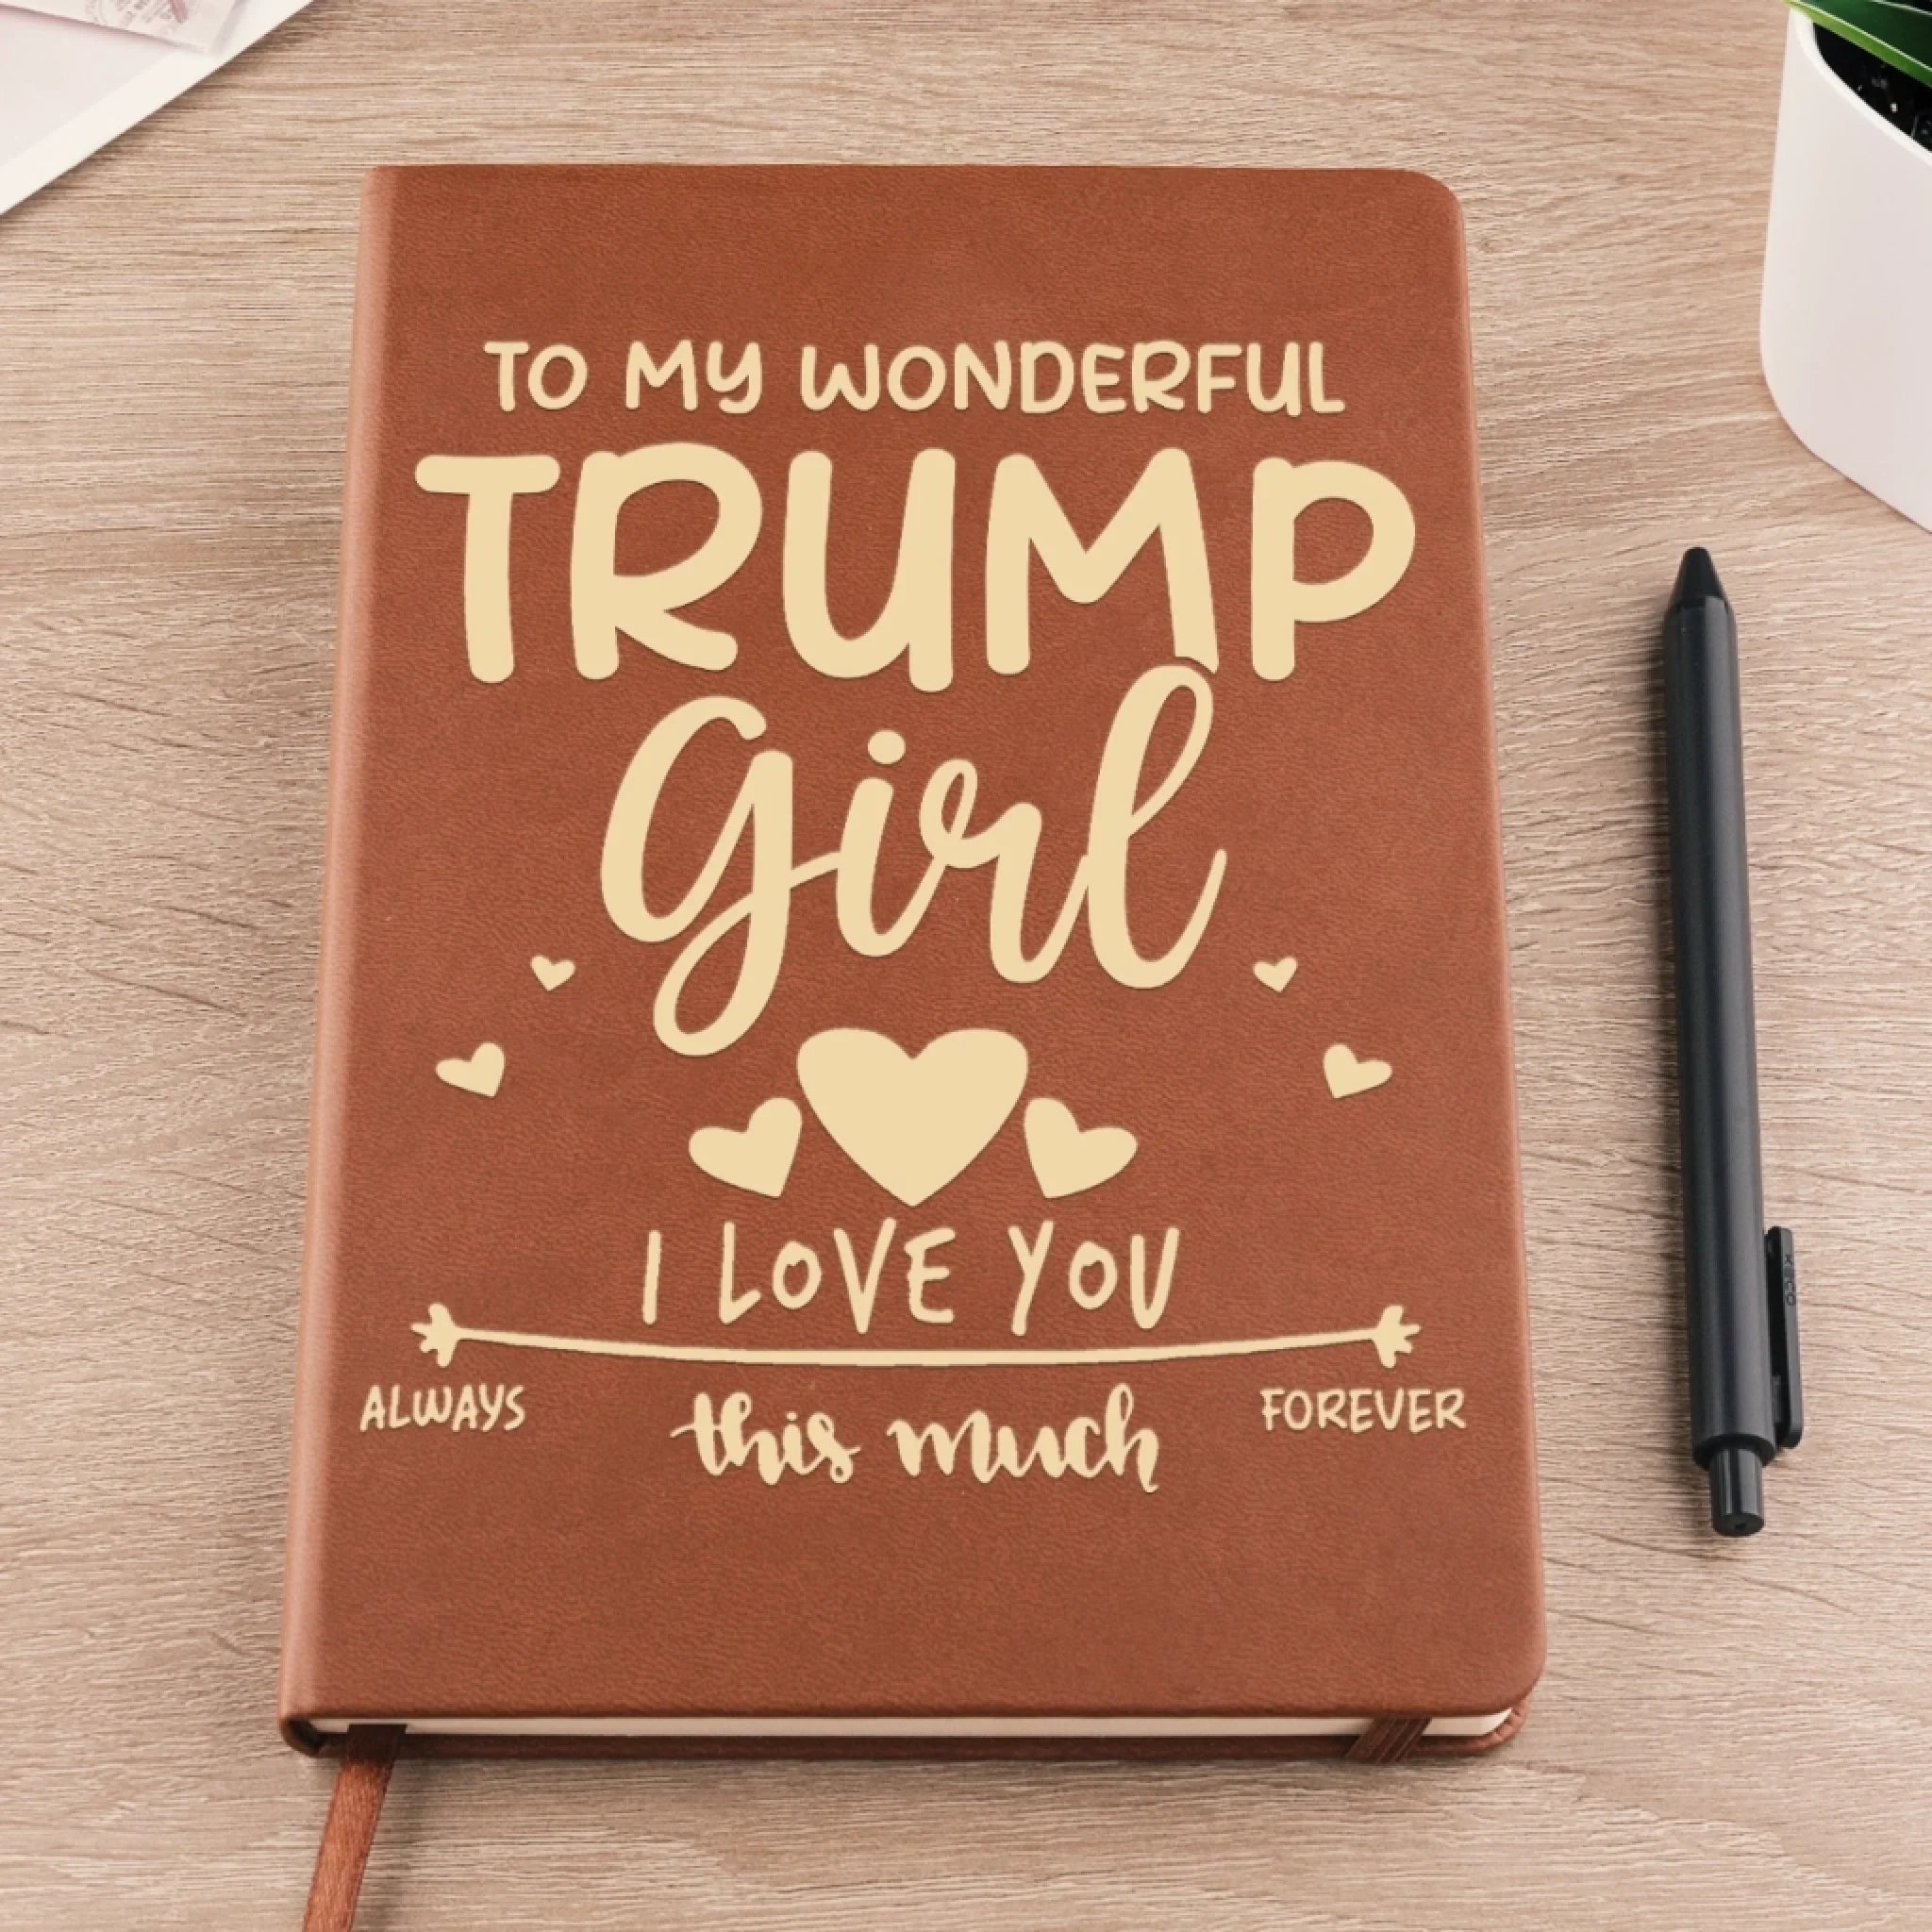 TO MY WONDERFUL
TRUMP
Girl
I LOVE YOU
ALWAYS this much FOREVER
KACO